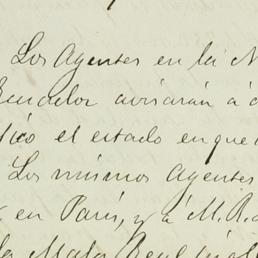 Los Agentes en la N
Ecuador avisarán á
el estado en que
Los mismos Agentes
en París, y á M. R.
la Mala Real